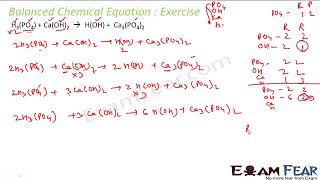 Balanced Chemical Equation : Exercise
H₃(PO₄) + Ca(OH)₂ → H(OH) + Ca₃(PO₄)₂
x2
2H₃(PO₄) + Ca(OH)₂ → H(OH) + Ca₃(PO₄)₂
2H₃(PO₄) + Ca(OH)₂ → 2 H(OH) + Ca₃(PO₄)₂
x3 x3
2H₃(PO₄) + 3 Ca(OH)₂ → 2 H(OH) + Ca₃(PO₄)₂
2H₃(PO₄) + 3 Ca(OH)₂ → 6 H(OH) + Ca₃(PO₄)₂
PO₄
OH
Ca
H
R P
PO₄ - 1 2
OH - 2 1
R P
PO₄ - 2 2
OH 2 2
Ca 1 3
PO₄ - 2 2
OH - 6 2
EXAMFEAR
No more fear from exams